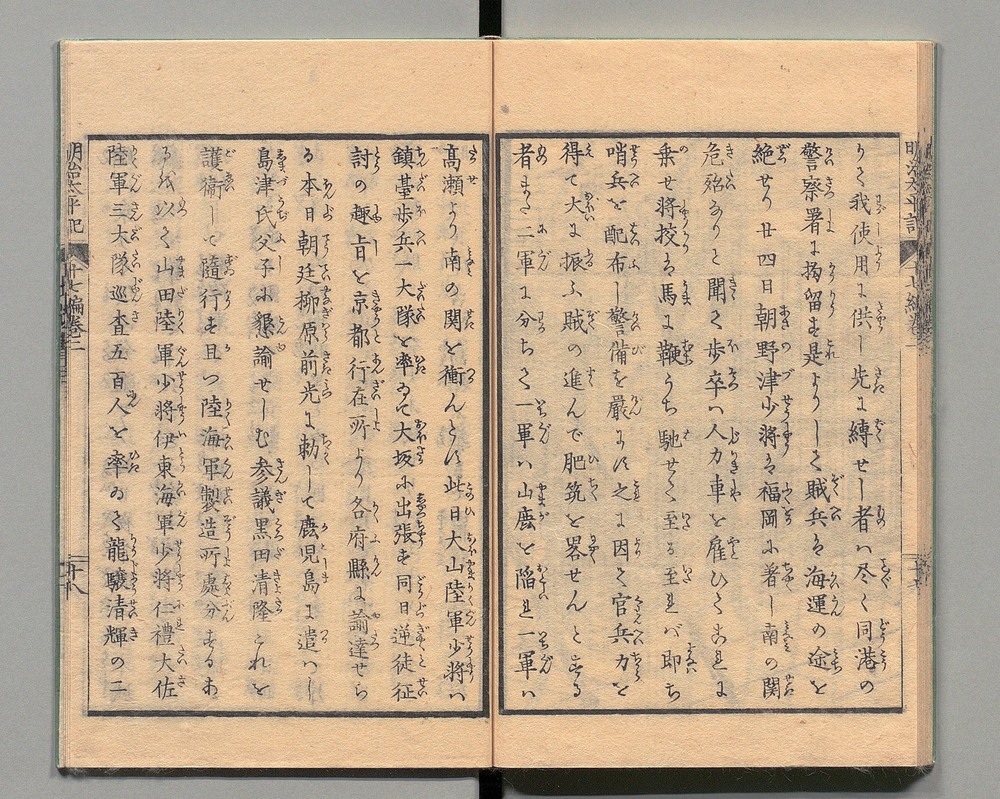 りて我使用に供し先に縛せし者ハ尽く同港の
警察署に拘留す是よりして賊兵ハ海運の途を
絶せり廿四日朝野津少将ハ福岡に着し南の関
危殆なりと聞く歩卒ハ人力車を雇ひてこれに
乗せ将校ハ馬に鞭うち馳せて至る至れバ即ち
哨兵を配布し警備を厳にす之に因て官兵力を
得て大に振ふ賊の進んで肥筑を畧せんとする
者また二軍に分ちて一軍ハ山鹿を陥れ一軍ハ
高瀬より南の関を衝んとす此日大山陸軍少将ハ
鎮臺歩兵一大隊を率ゐて大坂に出張す同日逆徒征
討の趣旨を京都行在所より各府縣に諭達せら
る本日朝廷柳原前光に勅して鹿児島に遣ハし
島津氏父子に懇諭せしむ参議黒田清隆これを
護衛して随行す且つ陸海軍製造所處分するあ
るを以て山田陸軍少将伊東海軍少将仁禮大佐
陸軍三大隊巡査五百人を率ゐて龍驤清輝の二
明治太平記
十七編巻之二
二十八